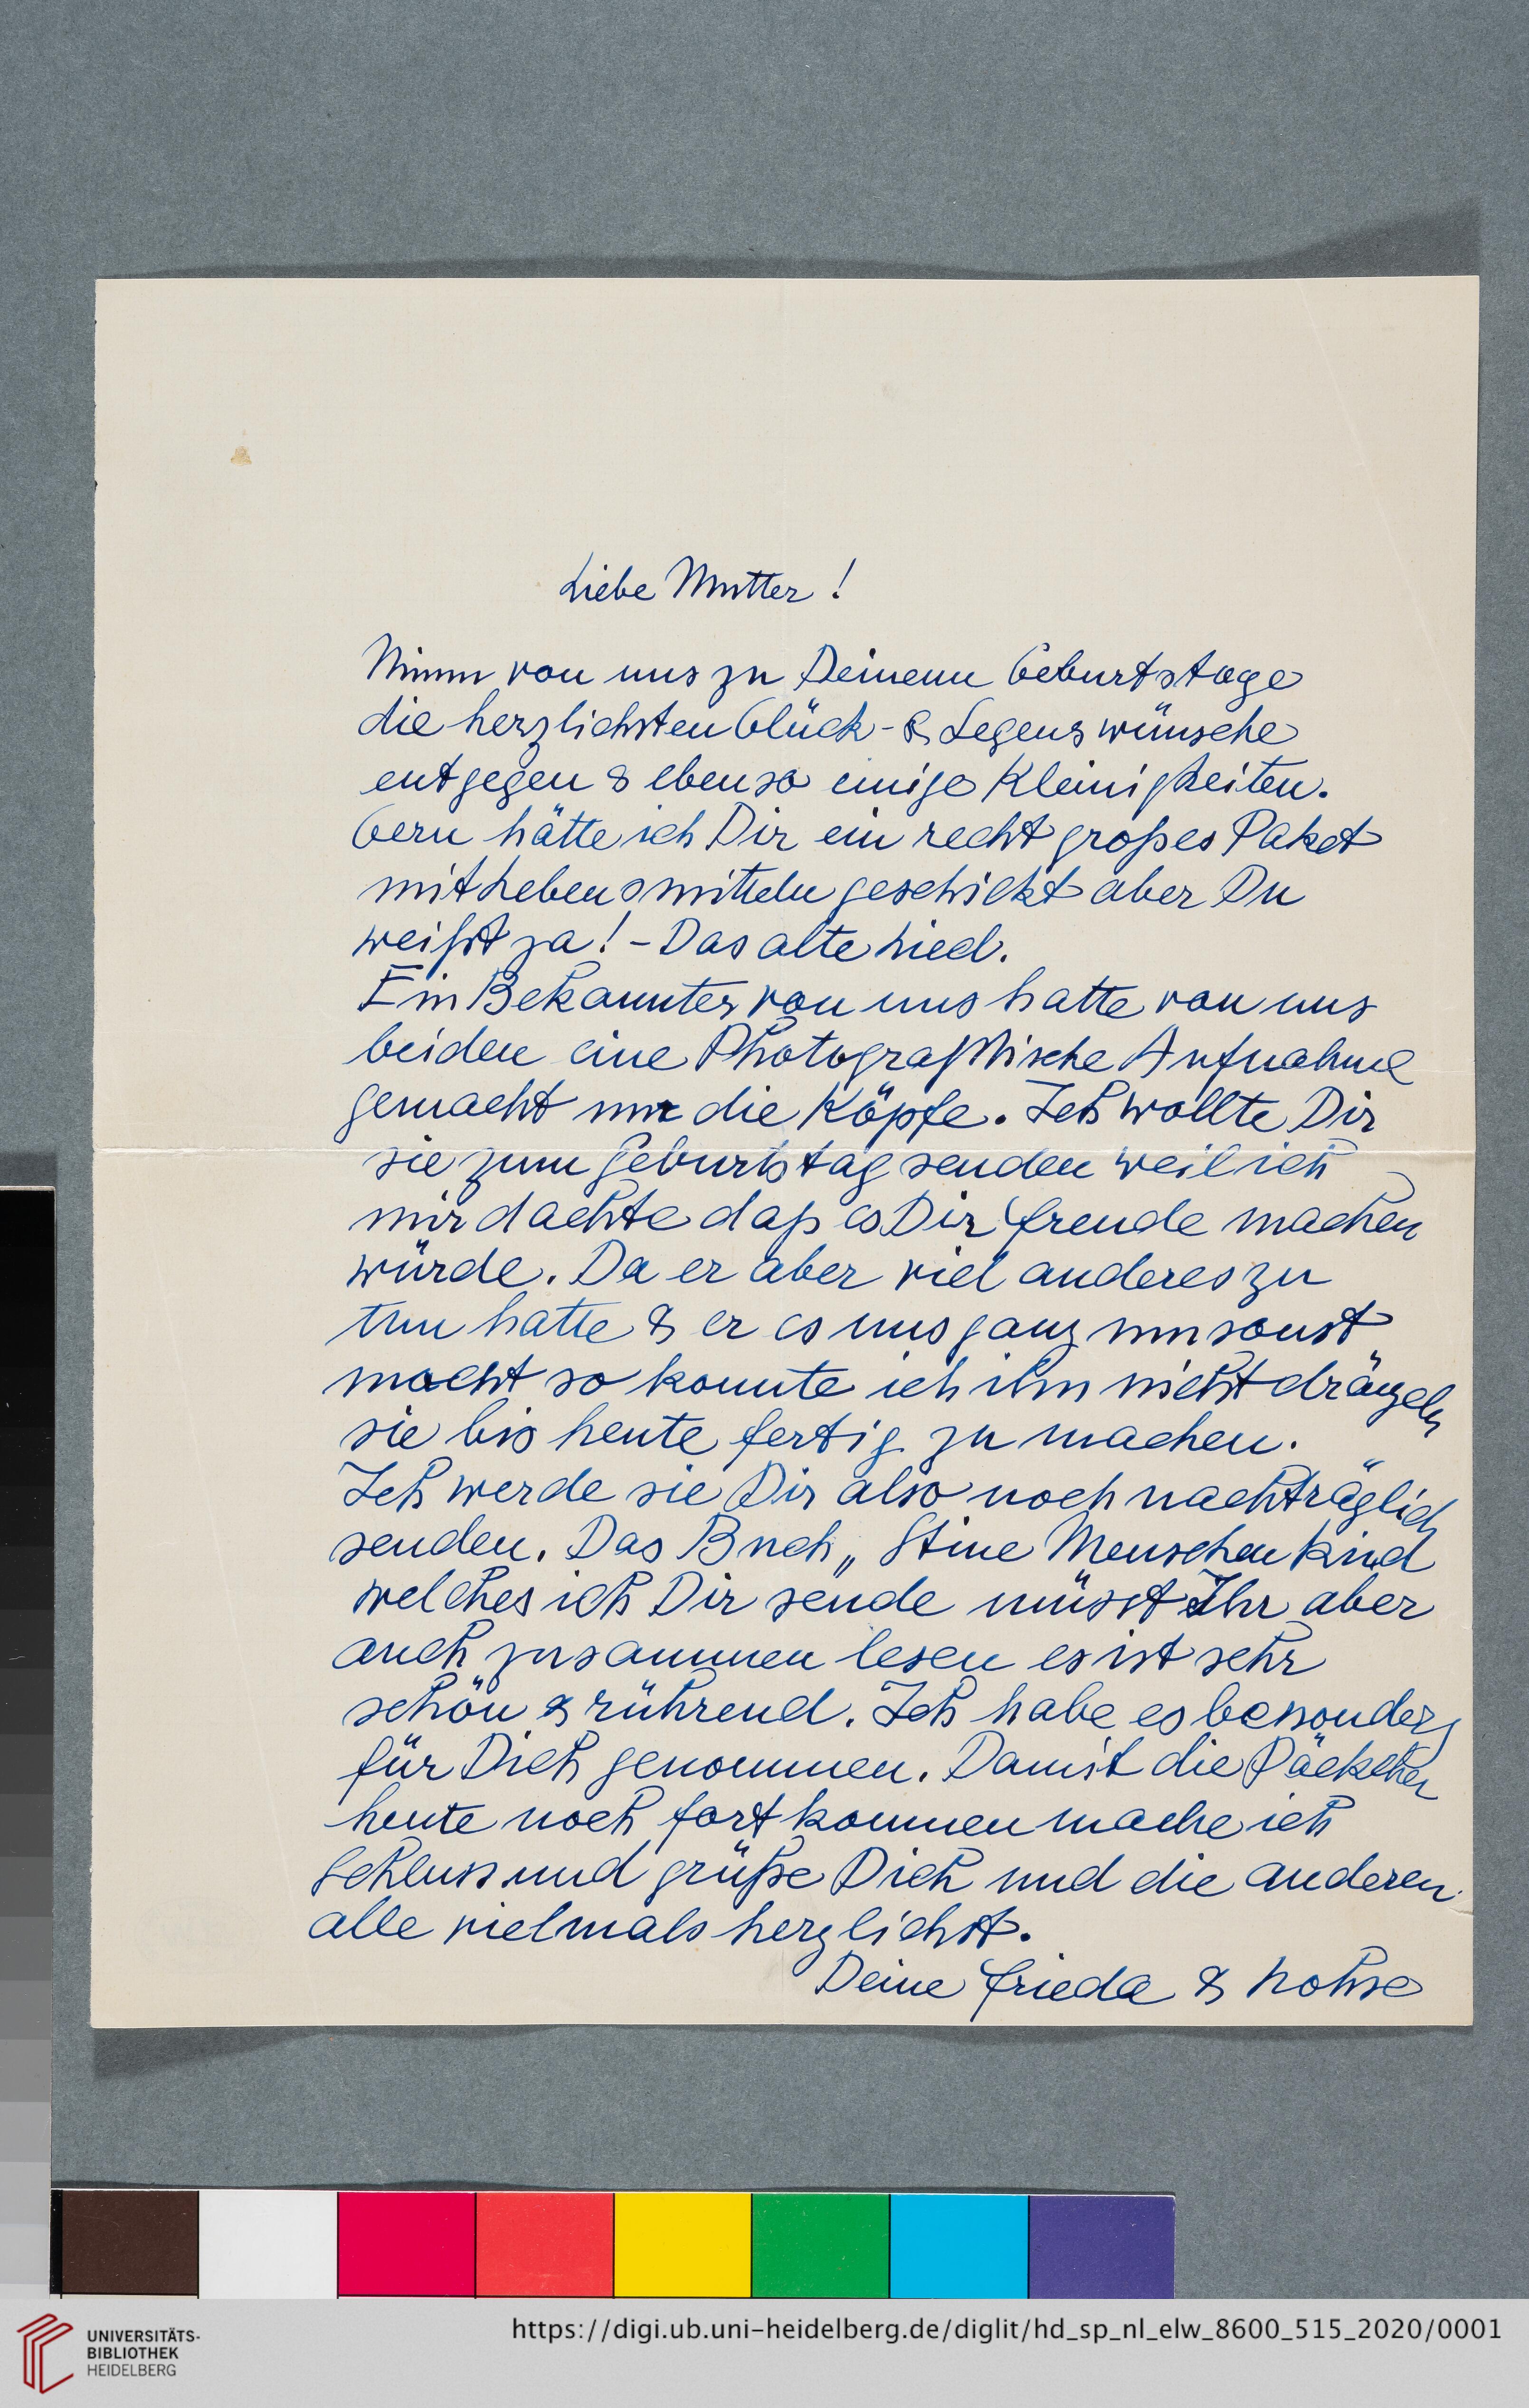 Liebe Mutter!
Nimm von uns zu Deinem Geburtstage
die herzlichsten Glück- & Segenswünsche
entgegen & ebenso einige Kleinigkeiten.
Gern hätte ich Dir ein recht großes Paket
mit Lebensmitteln geschickt aber Du
weißt ja! - Das alte Lied.
Ein Bekannter von uns hatte von uns
beiden eine Photographische Aufnahme
gemacht nur die Köpfe. Ich wollte Dir
sie zum Geburtstag senden weil ich
mir dachte daß es Dir Freude machen
würde. Da er aber viel anderes zu
tun hatte & er es uns ganz umsonst
macht so konnte ich ihm nicht drängeln
sie bis heute fertig zu machen.
Ich werde sie Dir also noch nachträglich
senden. Das Buch „Stine Menschenkind
welches ich Dir sende müsst Ihr aber
auch zusammen lesen es ist sehr
schön & rührend. Ich habe es besonders
für Dich genommen. Damit die Päckchen
heute noch fort kommen mache ich
Schluss und grüße Dich und die anderen
alle vielmals herzlichst.
Deine Frieda &
UNIVERSITÄTS-
BIBLIOTHEK
HEIDELBERG
https://digi.ub.uni-heidelberg.de/diglit/hd_sp_nl_elw_8600_515_2020/0001